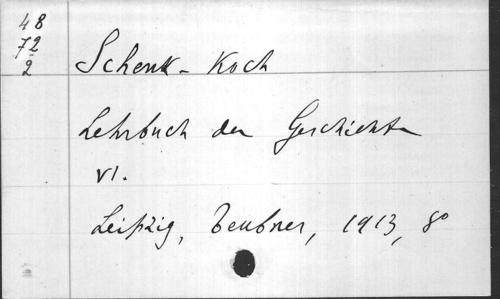 48
72
2
Schenk - Koch
Lehrbuch der Geschichte
VI.
Leipzig, Teubner, 1913, 8°